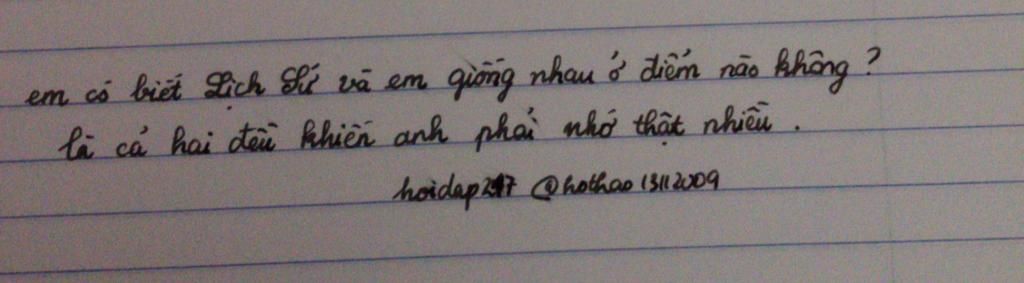 em có biết Lịch Sử và em giống nhau ở điểm nào không?
là cả hai đều khiến anh phải nhớ thật nhiều.
hoidap247 @hothao13112009